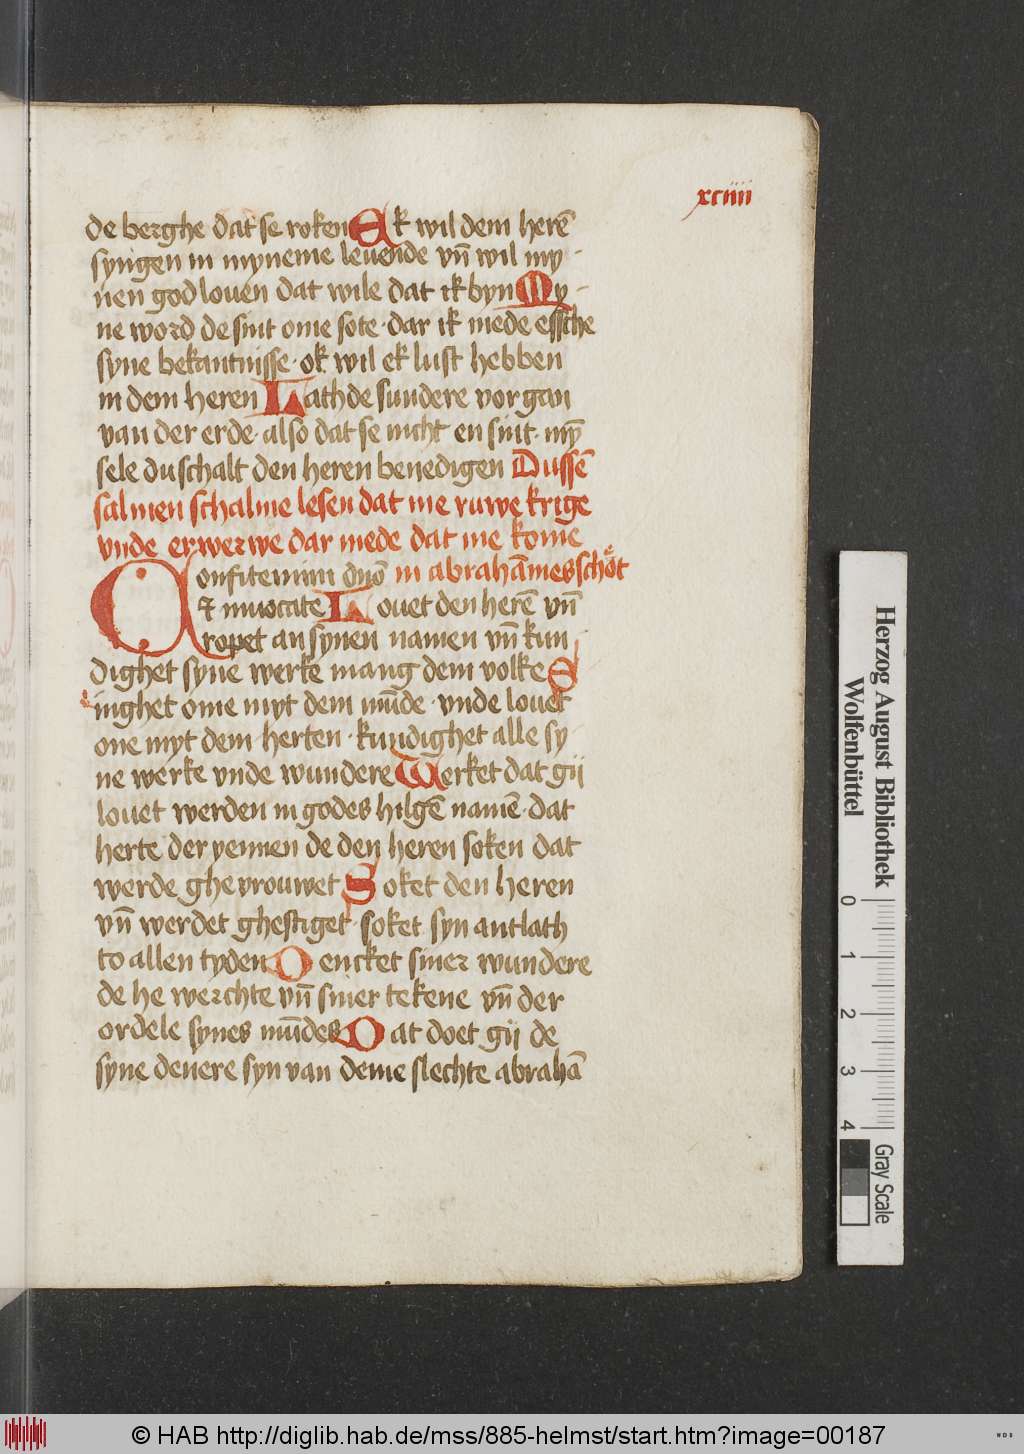 xciiii
de berghe dat se roken Ek wil dem herē
syngen in myneme leuende vn̄ wil my-
nen god louen dat wile dat ik byn My-
ne word de sint ome sote · dar ik mede essche
syne bekantnisse · ok wil ek lust hebben
in dem heren Lath de sundere vorgan
van der erde · also dat se nicht en sint · mȳ
sele du schalt den heren benedigen Dussē
salmen schalme lesen dat me ruwe krige
vnde erwerwe dar mede dat me kome
Confitemini dn̄o in abrahāmes schot
et inuocate Louet den herē vn̄
ropet an synen namen vn̄ kun-
dighet syne werke mang dem volke S
inghet ome myt dem mūde · vnde louet
one myt dem herten · kundighet alle sy-
ne werke vnde wundere Werket dat gij
louet werden in godes hilgē namē · dat
herte der yennen de den heren soken dat
werde ghevrouwet Soket den heren
vn̄ werdet ghestiget · soket syn antlath
to allen tyden Dencket siner wundere
de he werchte vn̄ siner tekene vn̄ der
ordele synes mūdes Dat doet gij de
syne denere syn van deme slechte abrahā
Herzog August Bibliothek
Wolfenbüttel
0 1 2 3 4
Gray Scale
© HAB http://diglib.hab.de/mss/885-helmst/start.htm?image=00187